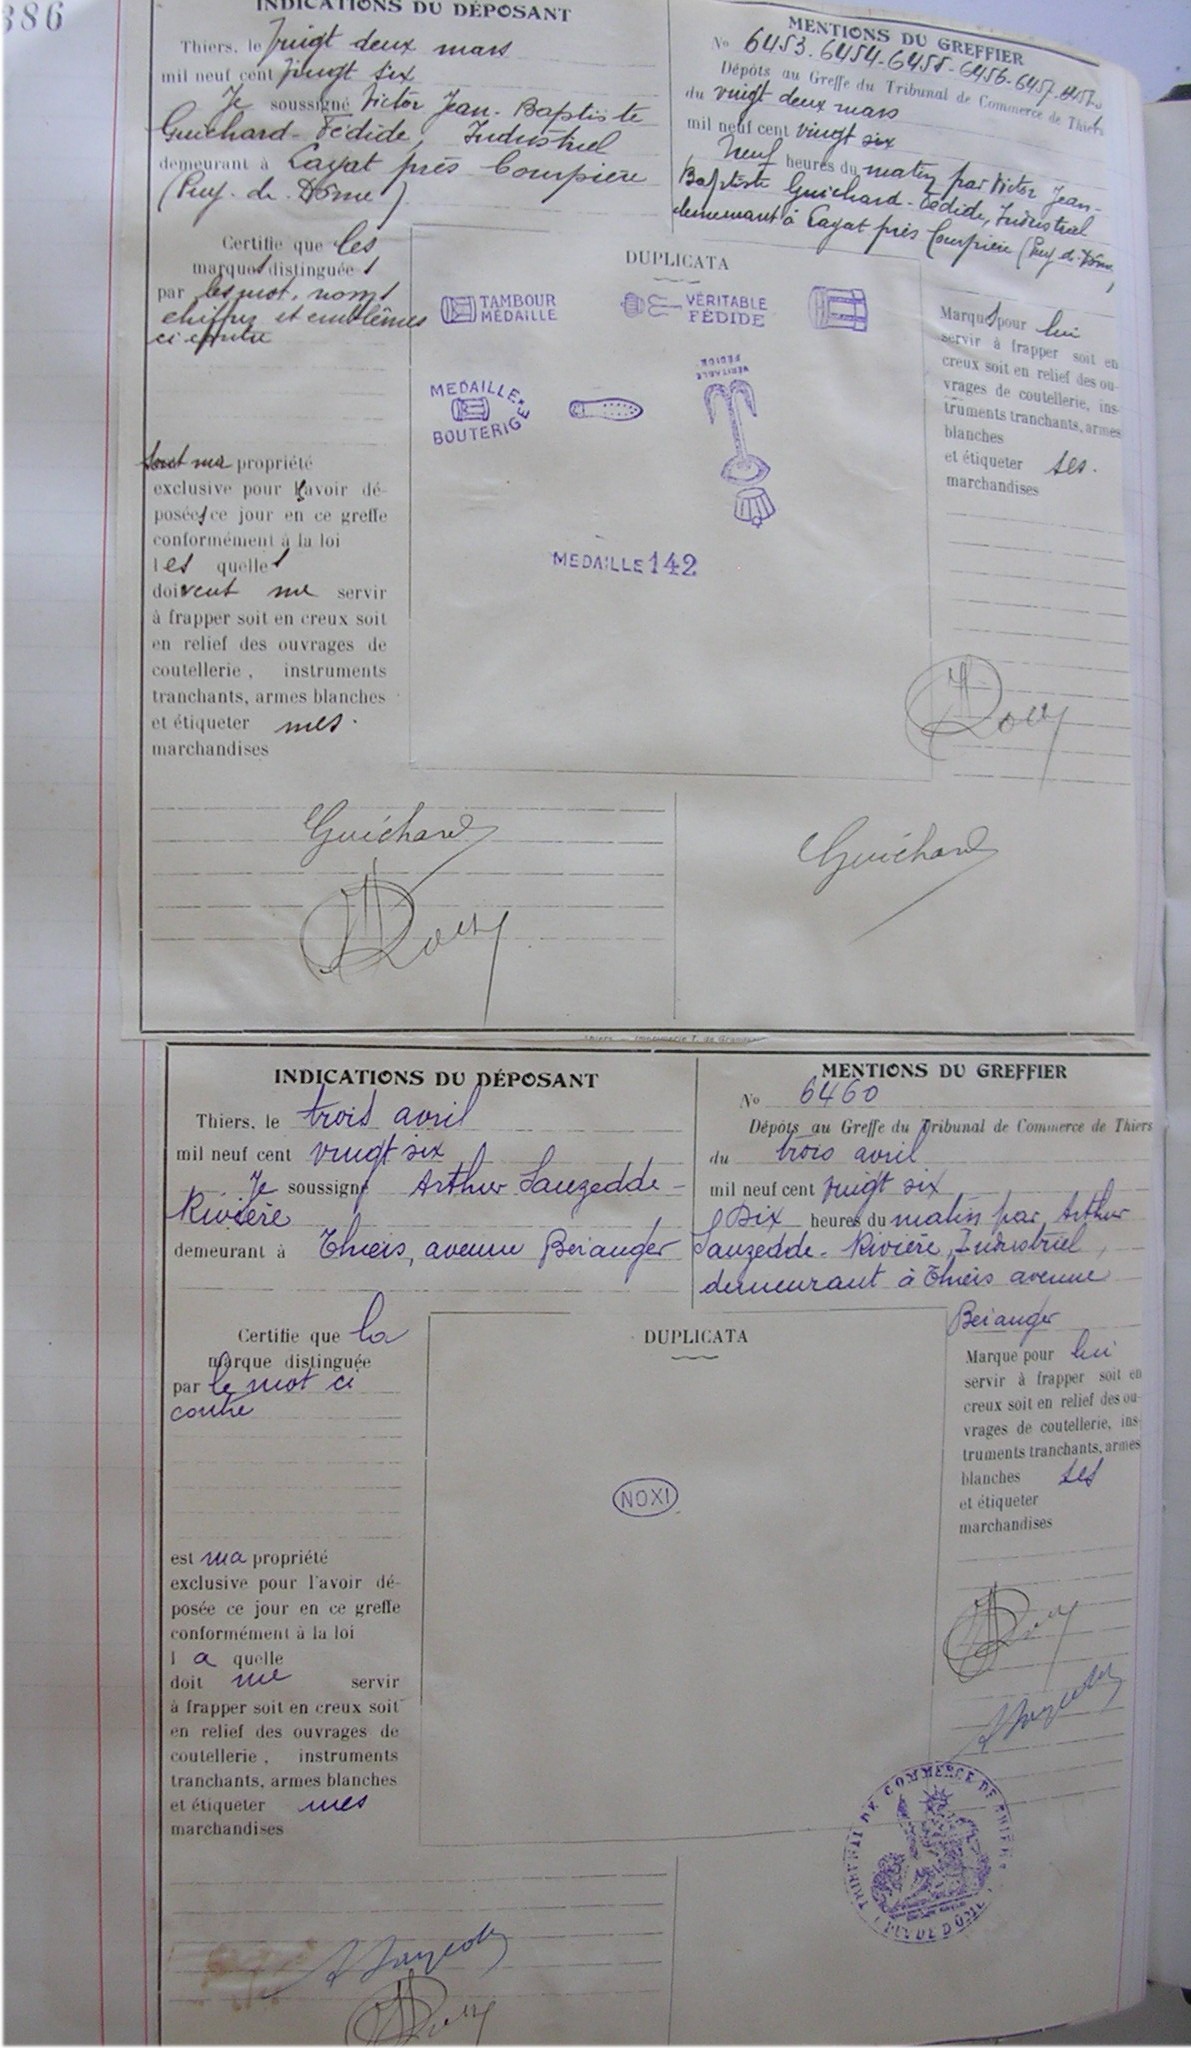 386
INDICATIONS DU DÉPOSANT
Thiers, le Vingt deux mars
mil neuf cent vingt six
Je soussigné Victor Jean-Baptiste
Guichard-Fédide, Industriel
demeurant à Layat près Courpière
(Puy-de-Dôme)
MENTIONS DU GREFFIER
No 6453-6454-6455-6456-6457-
Dépôts au Greffe du Tribunal de Commerce de Thiers
du vingt deux mars
mil neuf cent vingt six
Neuf heures du matin par Victor Jean-
Baptiste Guichard-Fédide, Industriel
demeurant à Layat près Courpière (Puy-de-Dôme
Certifie que les
marques distinguées
par les mot, noms
chiffres et emblêmes
ci contre
sont ma propriété
exclusive pour l'avoir dé-
posées ce jour en ce greffe
conformément à la loi
les quelles
doivent me servir
à frapper soit en creux soit
en relief des ouvrages de
coutellerie, instruments
tranchants, armes blanches
et étiqueter mes
marchandises
DUPLICATA
TAMBOUR
MEDAILLE
VÉRITABLE
FÉDIDE
MEDAILLE
BOUTERIGE
VÉRITABLE
FÉDIDE
MEDAILLE 142
Marques pour lui
servir à frapper soit en
creux soit en relief des ou-
vrages de coutellerie, ins-
truments tranchants, armes
blanches
et étiqueter ses
marchandises
Guichard
Guichard
INDICATIONS DU DÉPOSANT
Thiers, le trois avril
mil neuf cent vingt six
Je soussigné Arthur Sauzedde-
Rivière
demeurant à Thiers, avenue Béranger
MENTIONS DU GREFFIER
No 6460
Dépôts au Greffe du Tribunal de Commerce de Thiers
du trois avril
mil neuf cent vingt six
Dix heures du matin par Arthur
Sauzedde-Rivière, Industriel,
demeurant à Thiers avenue
Béranger
Certifie que la
marque distinguée
par le mot ci
contre
est ma propriété
exclusive pour l'avoir dé-
posée ce jour en ce greffe
conformément à la loi
la quelle
doit me servir
à frapper soit en creux soit
en relief des ouvrages de
coutellerie, instruments
tranchants, armes blanches
et étiqueter mes
marchandises
DUPLICATA
NOXI
Marque pour lui
servir à frapper soit en
creux soit en relief des ou-
vrages de coutellerie, ins-
truments tranchants, armes
blanches ses
et étiqueter
marchandises
TRIBUNAL DE COMMERCE DE THIERS
PUY DE DÔME